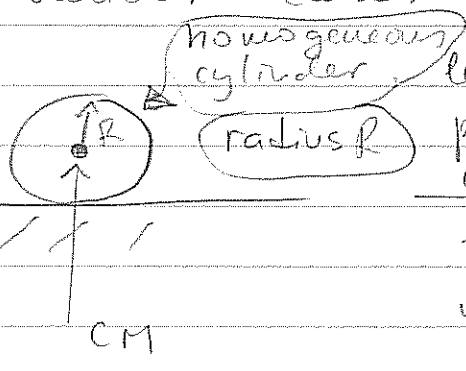 homogeneous
cylinder
R
radius R
CM